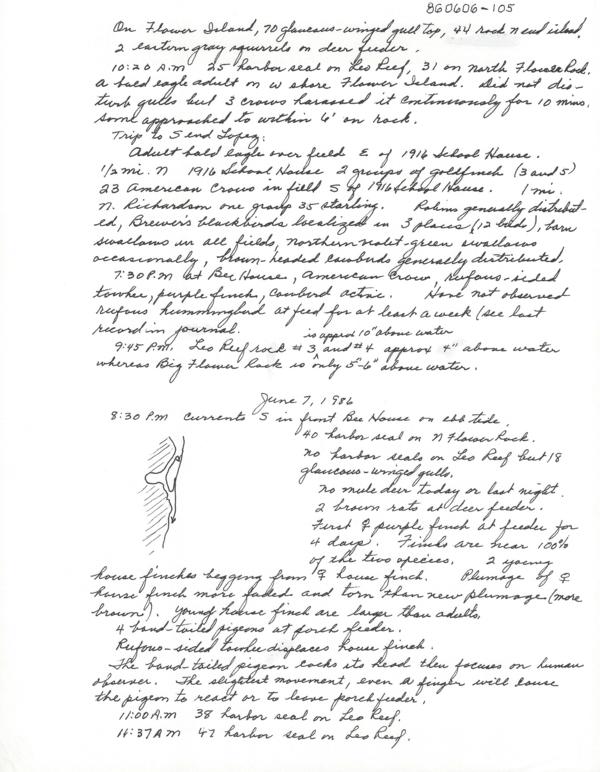 860606-105
On Flower Island, 70 glaucous-winged gull top, 44 rock N end island,
2 eastern gray squirrels on deer feeder.
10:20 A.M 25 harbor seal on Leo Reef, 31 on North Flower Rock.
A bald eagle adult on W shore Flower Island. Did not dis-
turb gulls but 3 crows harassed it continuously for 10 mins.
Some approached to within 6' on rock.
Trip to S end Lopez:
Adult bald eagle over field E of 1916 School House.
1/2 mi. N 1916 School House 2 groups of goldfinch (3 and 5)
23 American Crows in field S of 1916 School House. 1 mi.
N. Richardson one group 35 starling. Robins generally distribut-
ed, Brewer's blackbirds localized in 3 places (12 birds), barn
swallows in all fields, northern violet-green swallows
occasionally, brown-headed cowbirds generally distributed.
7:30 P.M at Bee House, American Crow, Rufous-sided
towhee, purple finch, cowbird active. Have not observed
rufous hummingbird at feed for at least a week (see last
record in journal.
is approx 10" above water
9:45 P.M. Leo Reef rock #3 and #4 approx 4" above water
whereas Big Flower Rock is only 5"-6" above water.
June 7, 1986
8:30 P.M Currents S in front Bee House on ebb tide.
40 harbor seal on N Flower Rock.
No harbor seals on Leo Reef but 18
glaucous-winged gulls.
No mule deer today or last night.
2 brown rats at deer feeder.
First ♀ purple finch at feeder for
4 days. Finches are near 100%
of the two species. 2 young
house finches begging from ♀ house finch. Plumage of ♀
house finch more faded and torn than new plumage (more
brown). Young house finch are larger than adults.
4 band-tailed pigeons at porch feeder.
Rufous-sided towhee displaces house finch.
The band-tailed pigeon cocks its head then focuses on human
observer. The slightest movement, even a finger will cause
the pigeon to react or to leave porch feeder.
11:00 A.M 38 harbor seal on Leo Reef.
11:37 A M 47 harbor seal on Leo Reef.